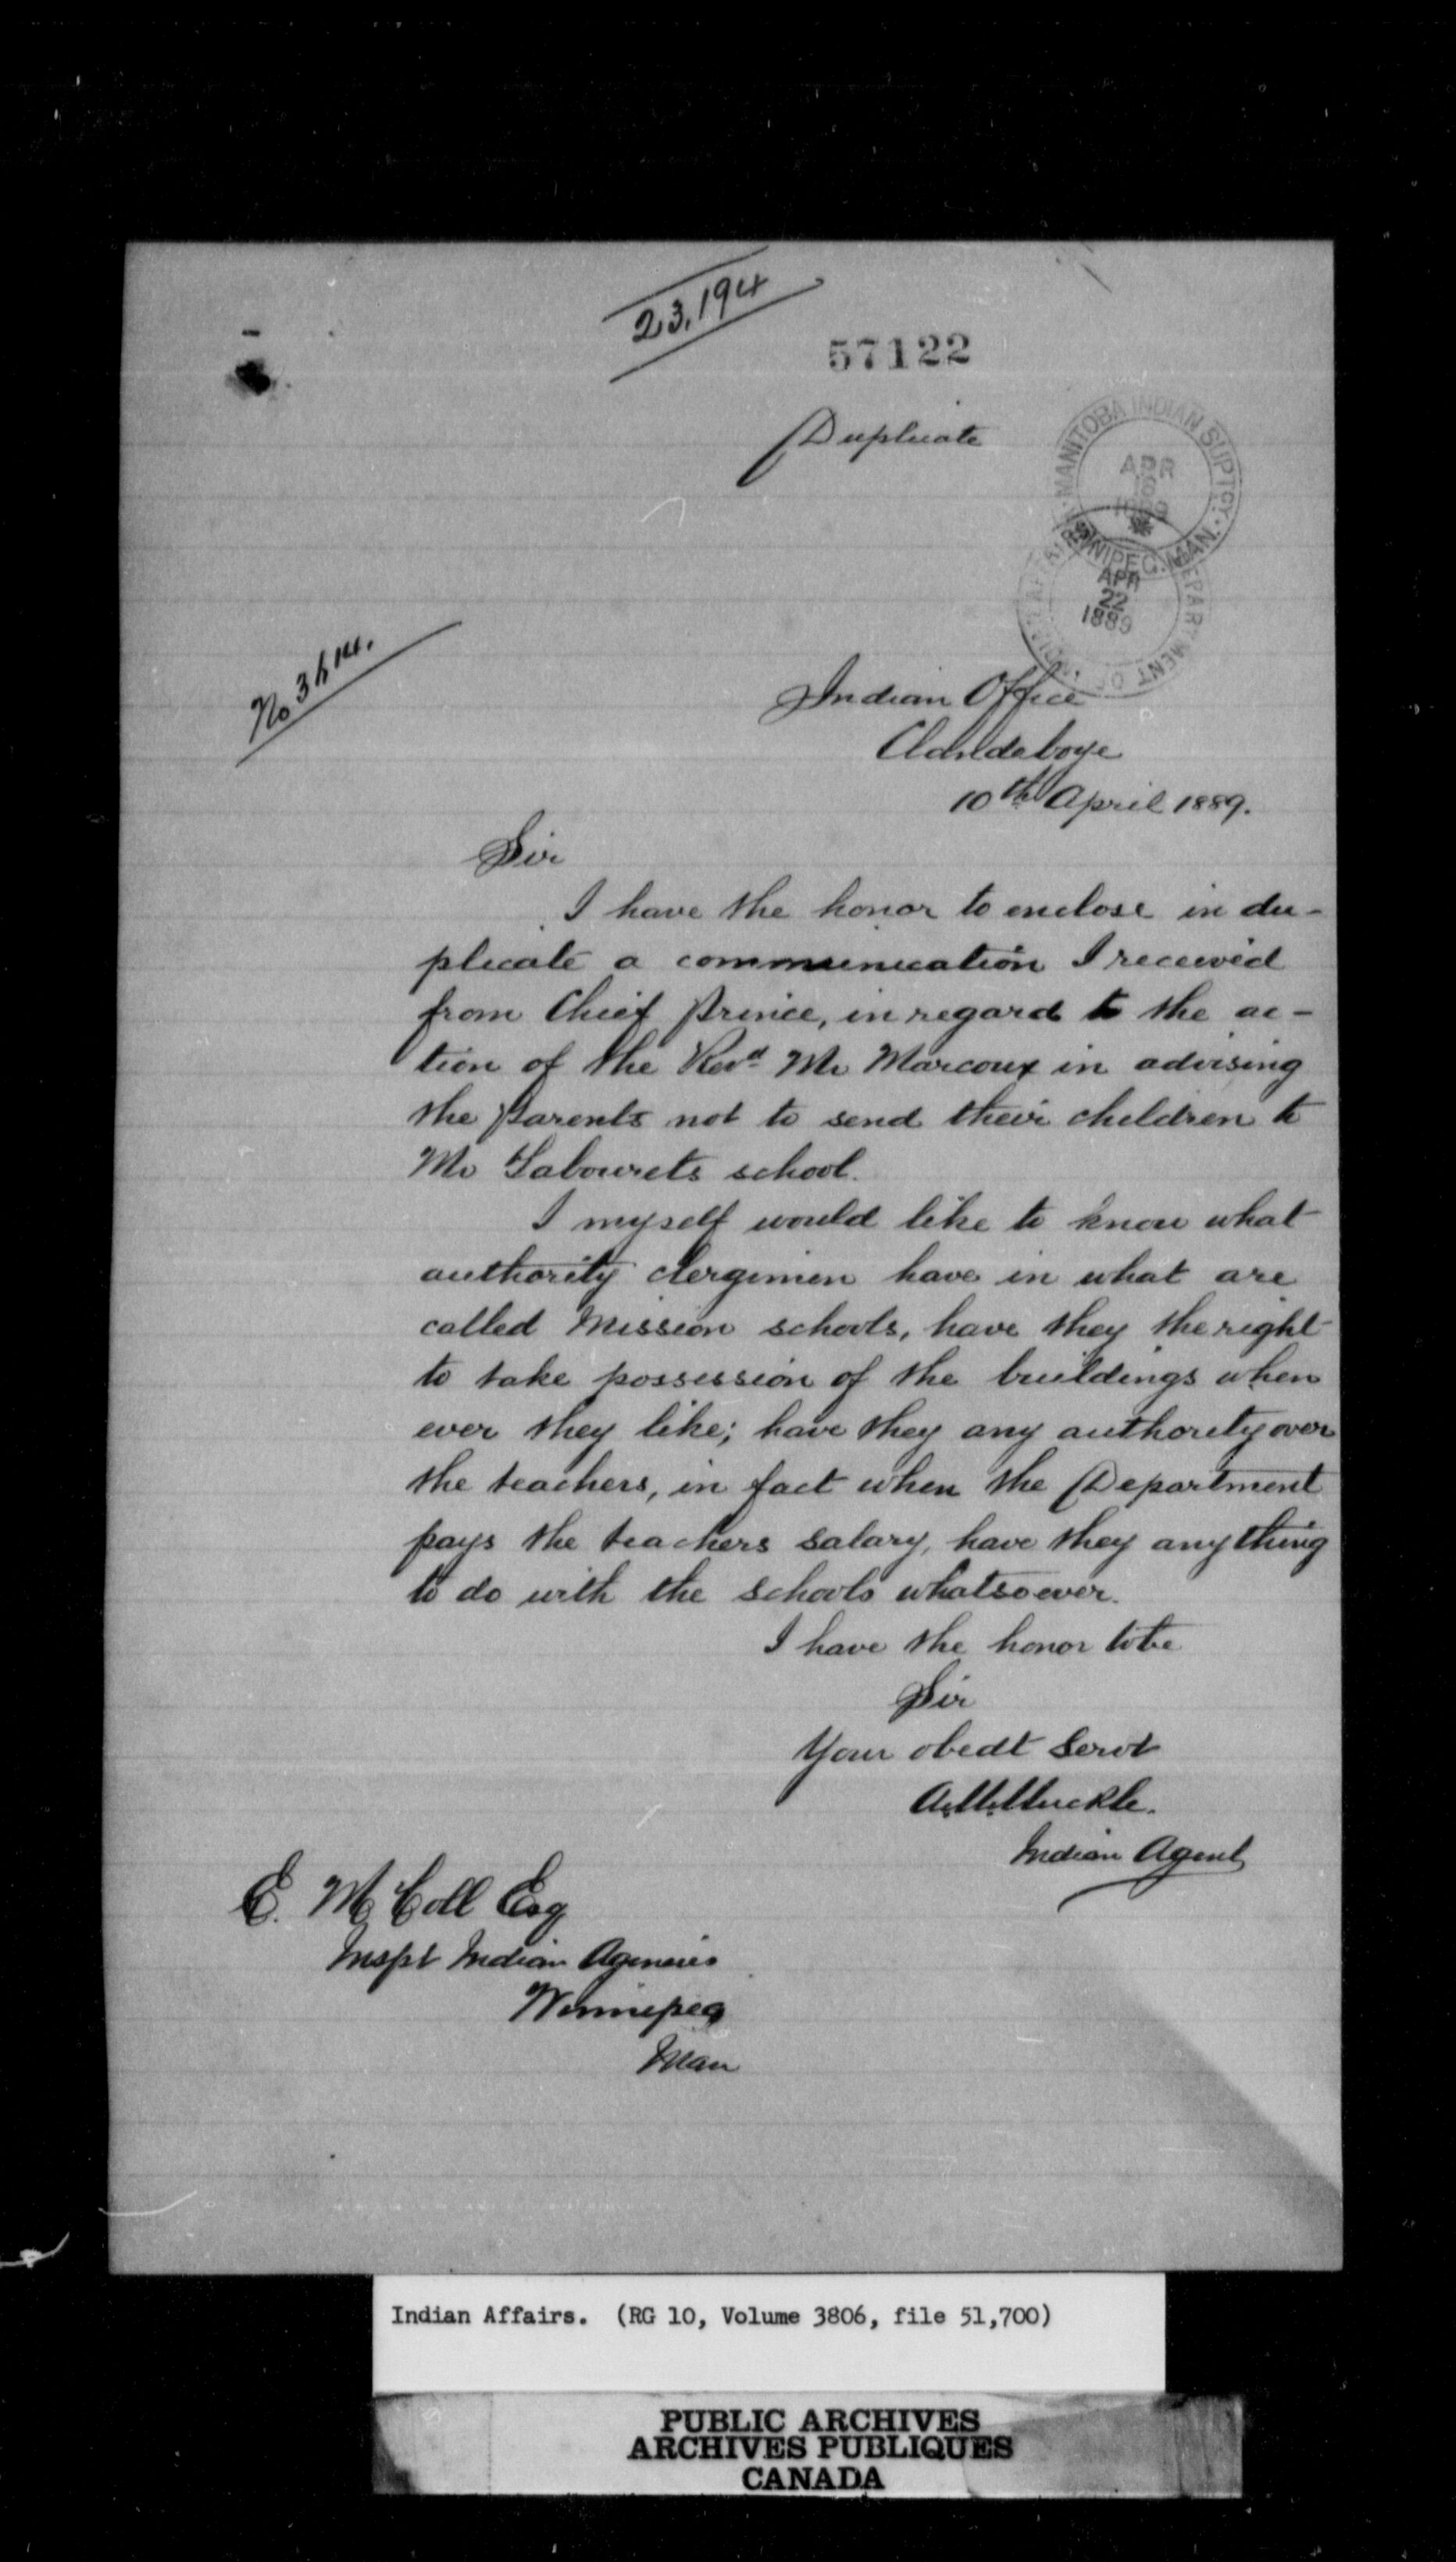 23,194
57122
Duplicate
MANITOBA INDIAN SUPTCY.
APR
WINNIPEG. MAN.
DEPARTMENT OF INDIAN AFFAIRS
APR
22
1889
No
Indian Office
Clandeboye
10th April 1889.
Sir
I have the honor to enclose in du-
plicate a communication I received
from Chief Prince, in regard to the ac-
tion of the Revd Mr Marcoux in advising
the Parents not to send their children to
Mr school.
I myself would like to know what
authority clergimen have in what are
called Mission schools, have they the right
to take possession of the buildings when
ever they like; have they any authority over
the teachers, in fact when the Department
pays the teachers salary, have they anything
to do with the schools whatsoever.
I have the honor to be
Sir
Your obedt Servt
A.M. Muckle.
Indian Agent
E. McColl Esq
Inspt Indian Agencies
Winnipeg
Man
Indian Affairs. (RG 10, Volume 3806, file 51,700)
PUBLIC ARCHIVES
ARCHIVES PUBLIQUES
CANADA